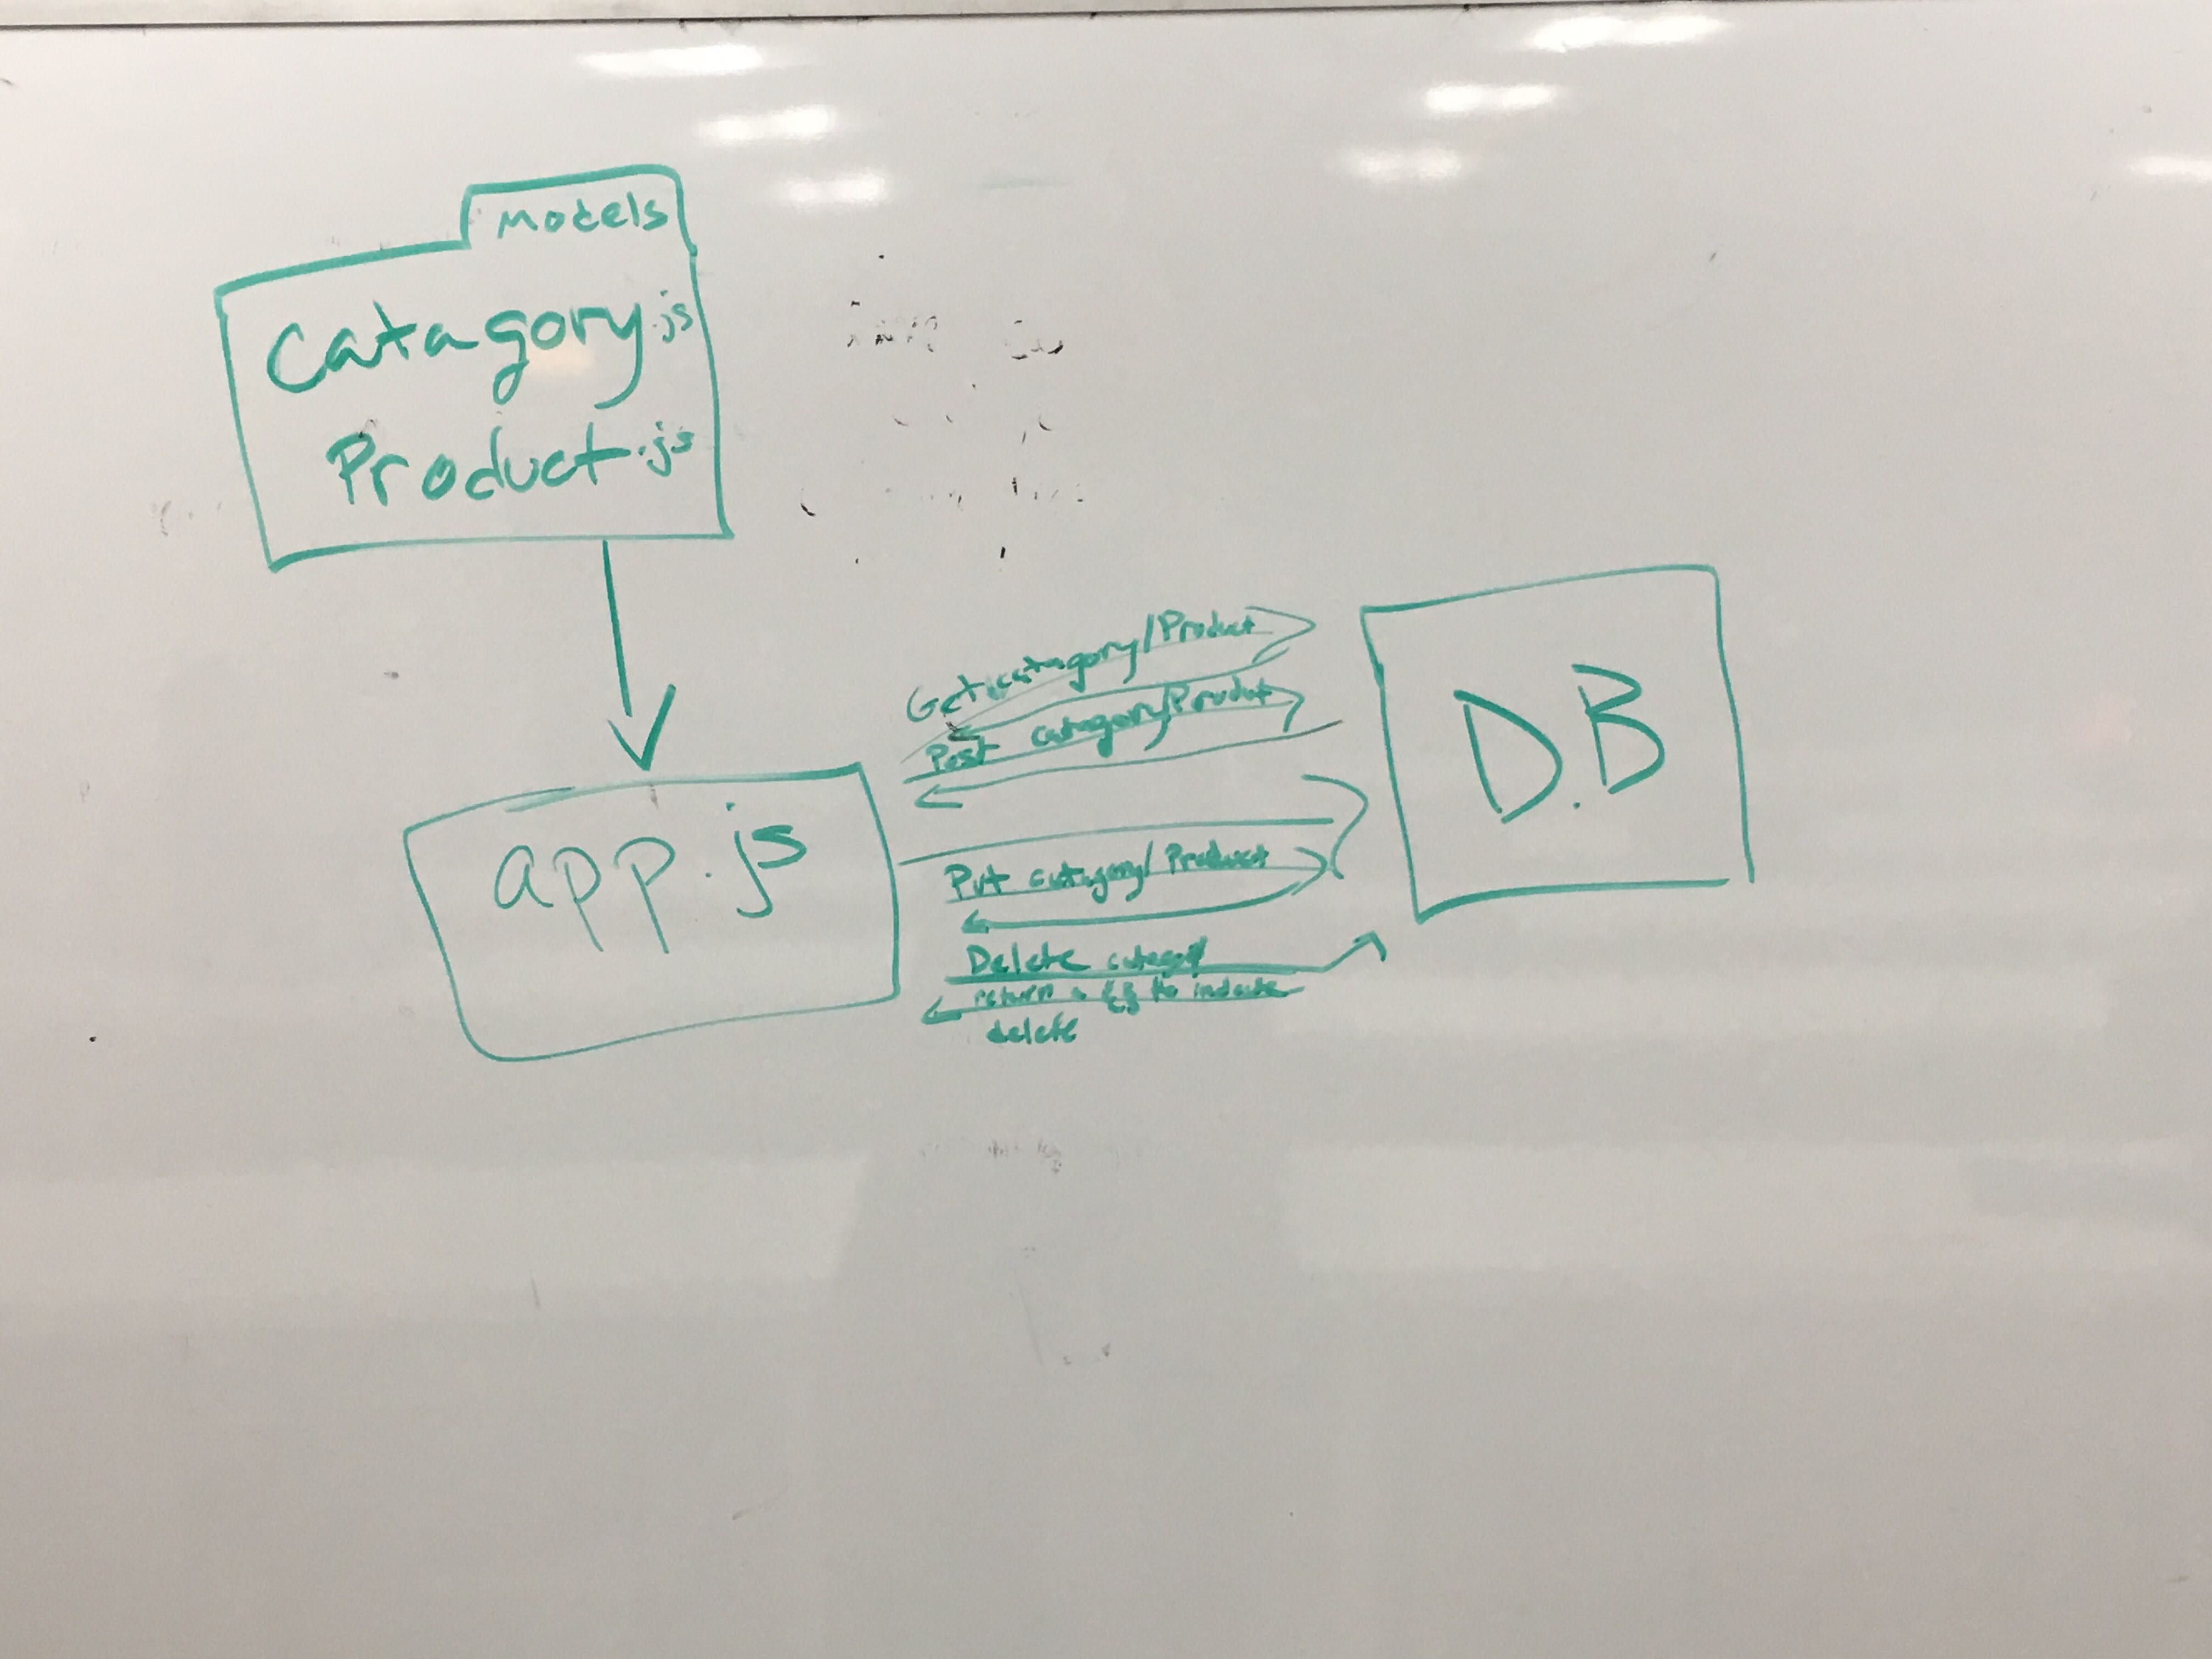 Models
Catagory.js
Product.js
Get catagory/Product
Post catagory/Product
app.js
D.B
Put catagory/Product
Delete category
return a {} to indicate
delete